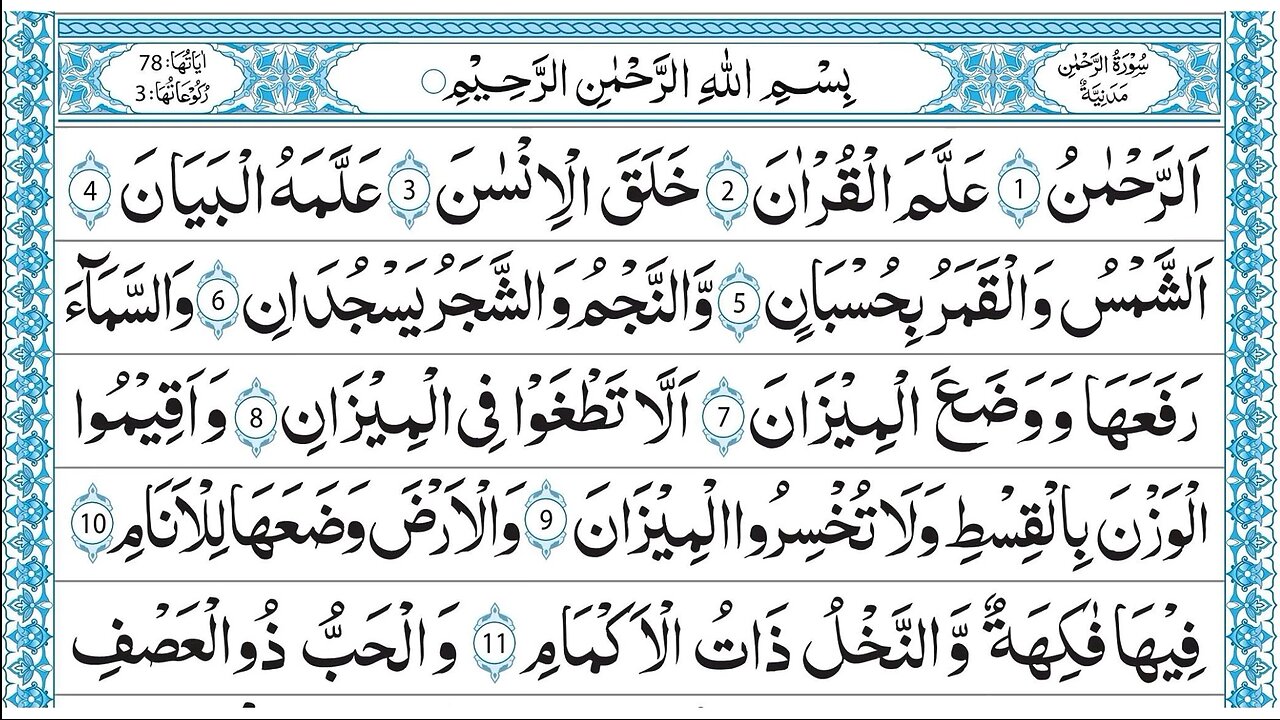 سُوْرَةُ الرَّحْمٰنِ
مَدَنِيَّةٌ
بِسْمِ اللهِ الرَّحْمٰنِ الرَّحِيْمِ
اٰيَاتُهَا: 78
رُكُوْعَاتُهَا: 3
اَلرَّحْمٰنُ 1 عَلَّمَ الْقُرْاٰنَ 2 خَلَقَ الْاِنْسٰنَ 3 عَلَّمَهُ الْبَيَانَ 4
اَلشَّمْسُ وَالْقَمَرُ بِحُسْبَانٍ 5 وَّالنَّجْمُ وَالشَّجَرُ يَسْجُدَانِ 6 وَالسَّمَآءَ
رَفَعَهَا وَوَضَعَ الْمِيْزَانَ 7 اَلَّا تَطْغَوْا فِى الْمِيْزَانِ 8 وَاَقِيْمُوا
الْوَزْنَ بِالْقِسْطِ وَلَا تُخْسِرُوا الْمِيْزَانَ 9 وَالْاَرْضَ وَضَعَهَا لِلْاَنَامِ 10
فِيْهَا فَاكِهَةٌ وَّالنَّخْلُ ذَاتُ الْاَكْمَامِ 11 وَالْحَبُّ ذُو الْعَصْفِ